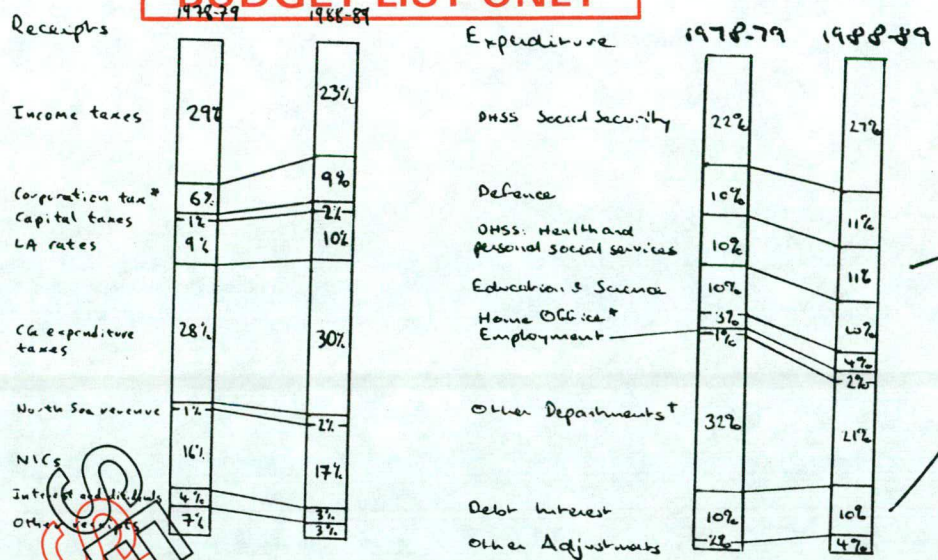 BUDGET LIST ONLY
Receipts
1978-79 1988-89
Income taxes 29% 23%
Corporation tax* 6% 9%
Capital taxes 1% 2%
LA rates 9% 10%
CG expenditure
taxes 28% 30%
North Sea revenue 1% 2%
NICs 16% 17%
Interest and dividends 4% 3%
Other receipts 7% 3%
Expenditure 1978-79 1988-89
DHSS Social Security 22% 27%
Defence 10% 11%
DHSS: Health and
personal social services 10% 11%
Education & Science 10% 10%
Home Office* 3% 4%
Employment 1% 2%
Other Departments† 32% 21%
Debt Interest 10% 10%
Other Adjustments 2% 4%